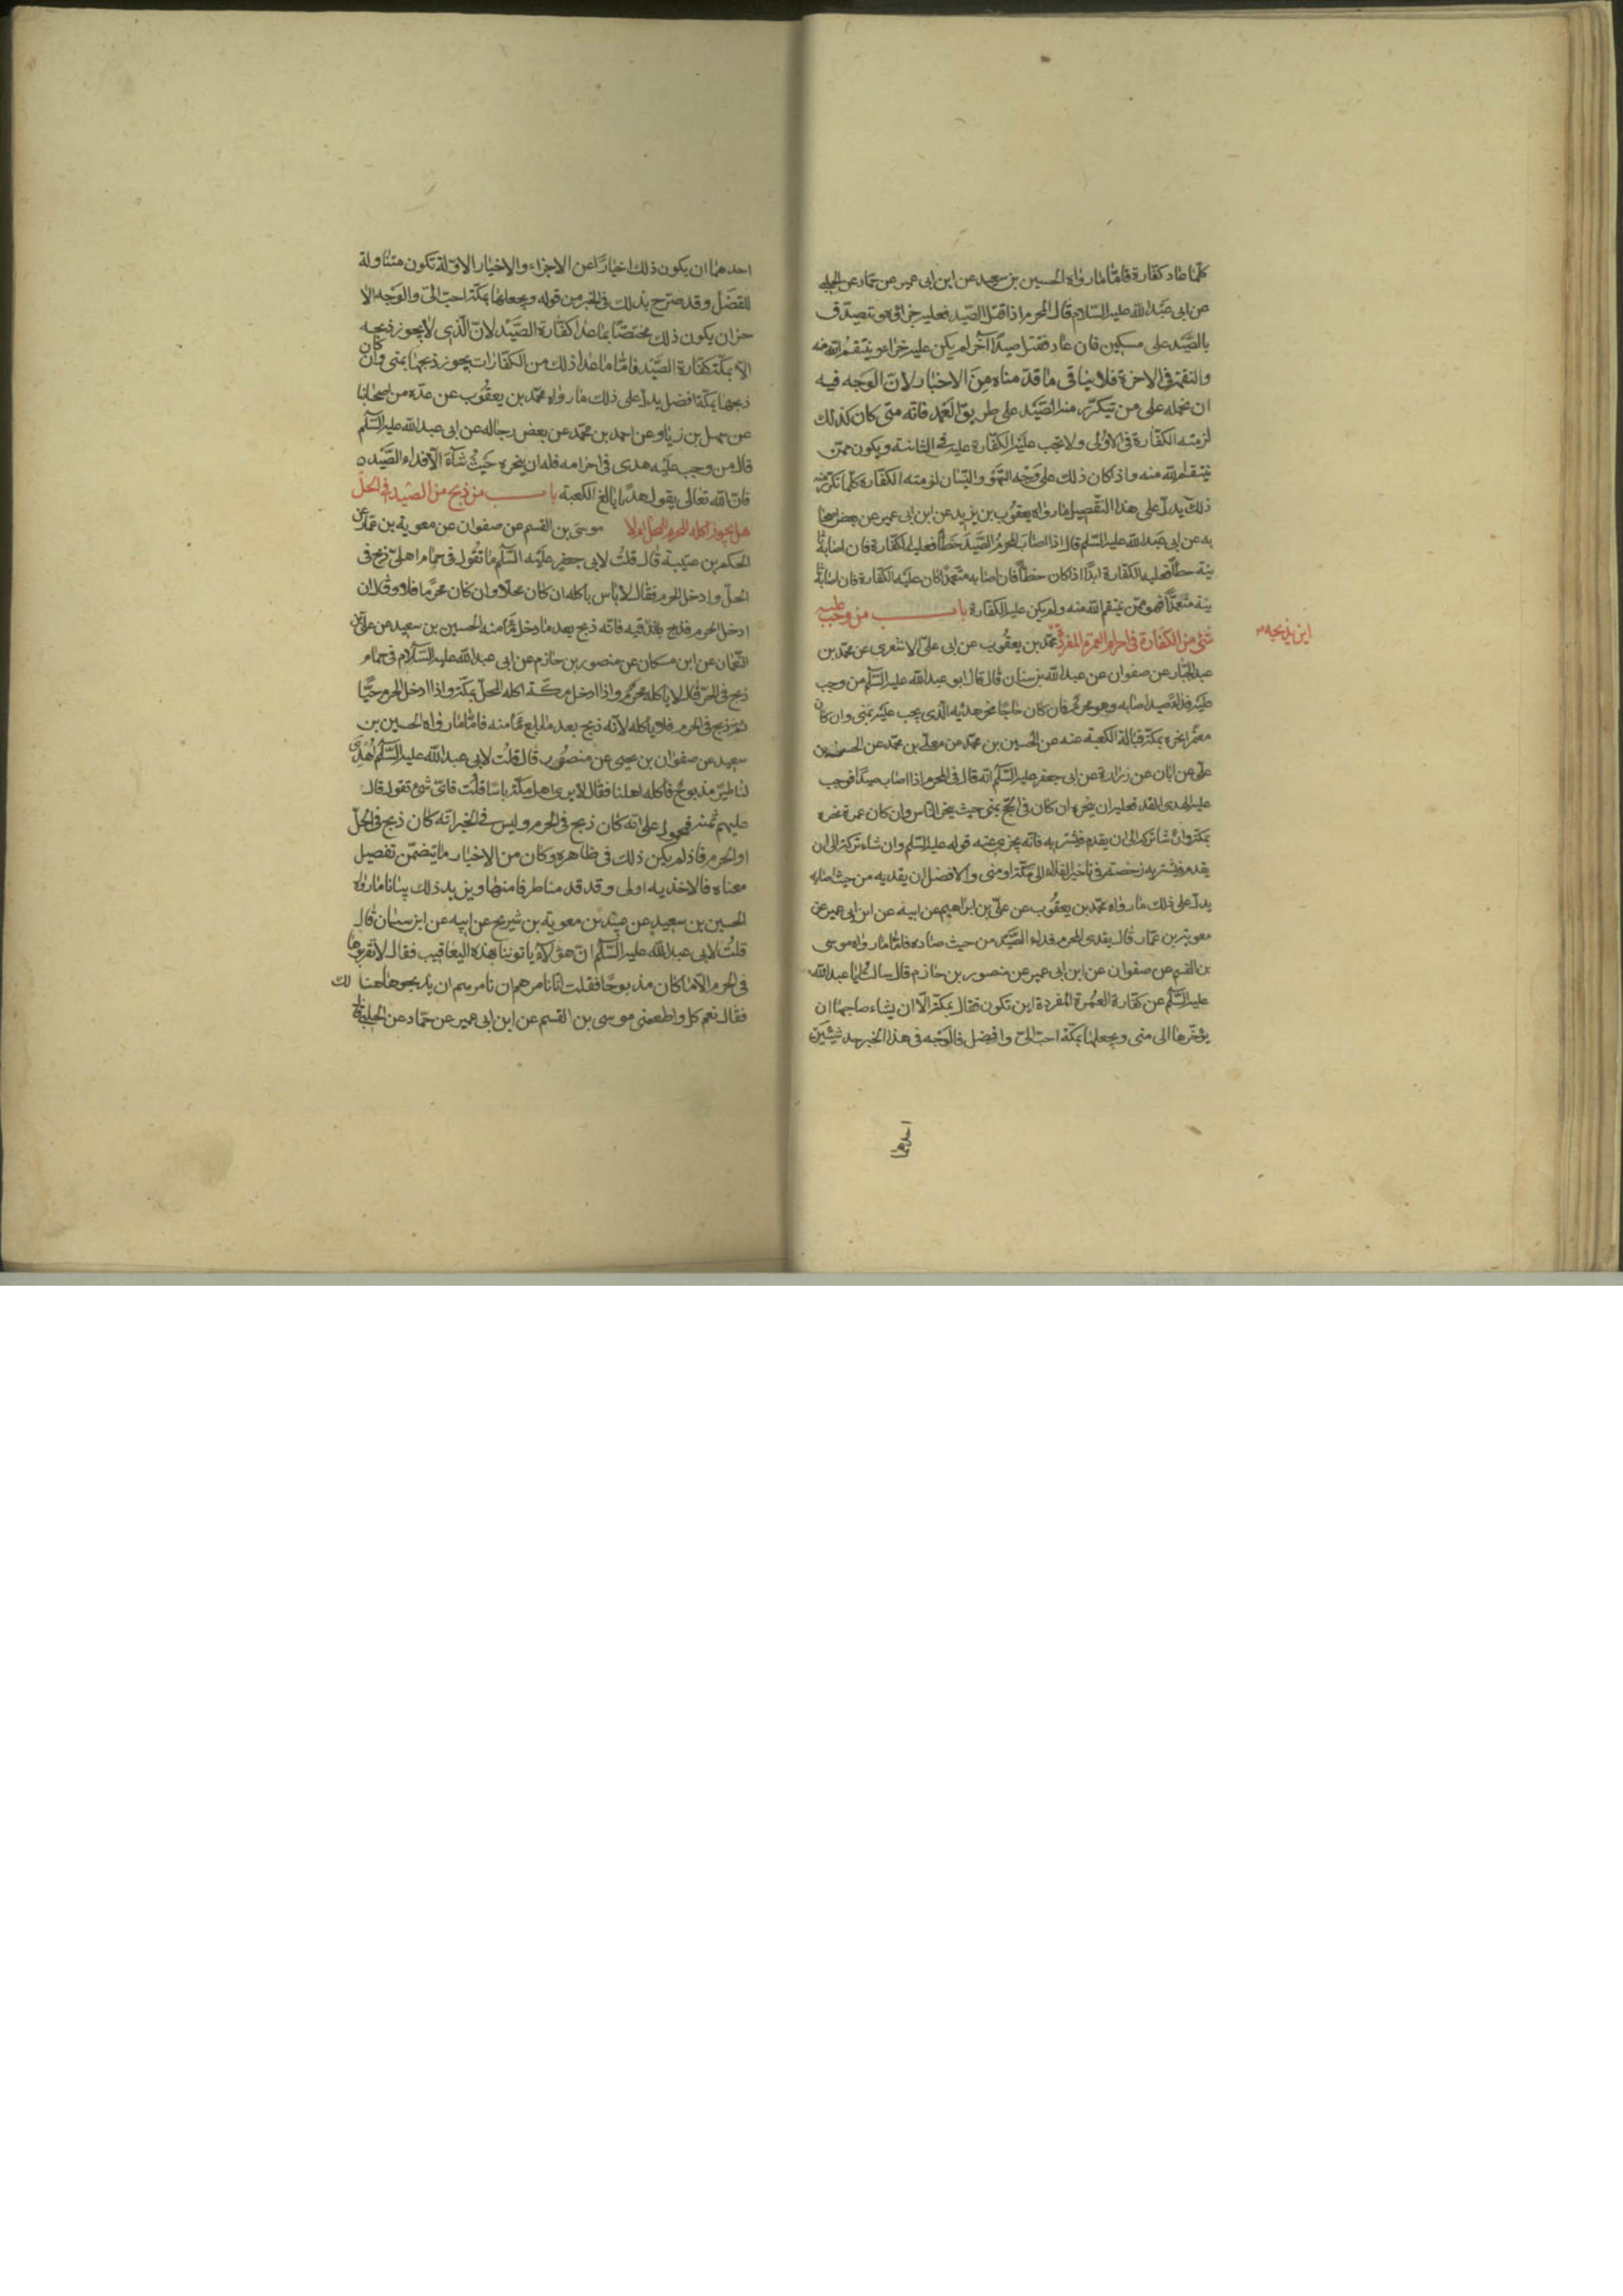 كلّما عاد كفارة فامّا ما رواه الحسين بن سعيد عن ابن ابى عمير عن حماد عن الحلبى
عن ابى عبد الله عليه السّلام قال المحرم اذا قتل الصّيد فعليه جزاؤه ويتصدّق
بالصّيد على مسكين فان عاد فقتل صيدًا آخر لم يكن عليه جزاء وينتقم الله منه
والنقمة فى الاخرة فلا ينافى ما قدّمناه من الاخبار لانّ الوجه فيه
ان نحمله على من تكرّر منه الصّيد على طريق العمد فانّه متى كان كذلك
لزمته الكفّارة فى الاولى ولا تجب عليه الكفّارة عليه فى الثانية ويكون ممّن
ينتقم الله منه واذا كان ذلك على وجه السّهو والنّسيان لزمته الكفّارة كلّما تكرّر منه
ذلك يدلّ على هذا التّفصيل ما رواه يعقوب بن يزيد عن ابن ابى عمير عن بعض اصحا
به عن ابى عبد الله عليه السّلم قال اذا اصاب المحرم الصّيد خطأ فعليه الكفّارة فان اصابه ثا
نية خطأ فعليه الكفّارة ابدًا اذا كان خطأ فان اصابه متعمّدًا كان عليه الكفّارة فان اصابه ثا
نية متعمّدًا فهو ممّن ينتقم الله منه ولم يكن عليه الكفّارة باب من وجب عليه
شئ من الكفارة فى احرام العمرة المفردة محمّد بن يعقوب عن ابى علىّ الاشعرى عن محمّد بن
اين يذبحه
عبد الجبّار عن صفوان عن عبد الله بن سنان قال قال ابو عبد الله عليه السّلم من وجب
عليه فداء صيد اصابه وهو محرم فان كان حاجّا نحر هديه الّذى يجب عليه بمنى وان كان
معتمرًا نحره بمكة قبالة الكعبة عنه عن الحسين بن محمّد عن معلّى بن محمّد عن الحسن بن
علىّ عن ابان عن زرارة عن ابى جعفر عليه السّلم انّه قال فى المحرم اذا اصاب صيدًا فوجب
عليه الهدى فعليه ان ينحره ان كان فى الحجّ بمنى حيث ينحر النّاس وان كان عمرة نحره
بمكة وان شاء تركه الى ان يقدم فيشتريه فانّه يجزى عنه قوله عليه السّلم وان شاء تركه الى ان
يقدم فيشتريه رخصة فى تأخير الفداء الى مكّة او منى والافضل ان يفديه من حيث اصابه
يدلّ على ذلك ما رواه محمّد بن يعقوب عن علىّ بن ابراهيم عن ابيه عن ابن ابى عمير عن
معوية بن عمّار قال يفدى المحرم فداء الصّيد من حيث صاده فامّا ما رواه موسى
بن القسم عن صفوان عن ابن ابى عمير عن منصور بن حازم قال سالت ابا عبد الله
عليه السّلم عن كفّارة العمرة المفردة اين تكون فقال بمكّة الّا ان يشاء صاحبها ان
يؤخّرها الى منى ويجعلها بمكّة احبّ الىّ وافضل فالوجه فى هذا الخبر احد شيئين
احدهما
احدهما ان يكون ذلك اخبارًا عن الاجزاء والاخبار الاوّلة تكون متناولة
للفضل وقد صرّح بذلك فى الخبر من قوله ويجعلها بمكّة احبّ الىّ والوجه الا
خر ان يكون ذلك مختصّا بما عدا كفّارة الصّيد لانّ الّذى لا يجوز ذبحه
الّا بمكّة كفّارة الصّيد فامّا ما عدا ذلك من الكفّارات يجوز ذبحها بمنى وان كان
ذبحها بمكّة افضل يدلّ على ذلك ما رواه محمّد بن يعقوب عن عدّة من اصحابنا
عن سهل بن زياد عن احمد بن محمّد عن بعض رجاله عن ابى عبد الله عليه السّلم
قال من وجب عليه هدى فى احرامه فله ان ينحره حيث شآء الّا فداء الصّيد
فانّ الله تعالى يقول هديًا بالغ الكعبة باب من ذبح من الصّيد فى الحلّ
هل يجوز اكله المحرم للمحلّ ام لا موسى بن القسم عن صفوان عن معوية بن عمّار عن
الحكم بن عتيبة قال قلت لابى جعفر عليه السّلم ما تقول فى حمام اهلىّ ذبح فى
الحلّ وادخل الحرم فقال لا بأس باكله ان كان محلّا وان كان محرمًا فلا وقال ان
ادخل الحرم فذبح فيه فانّه ذبح بعد ما دخل مأمنه الحسين بن سعيد عن علىّ بن
النّعمان عن ابن مسكان عن منصور بن حازم عن ابى عبد الله عليه السّلام فى حمام
ذبح فى الحلّ قال لا يأكله محرم واذا ادخل مكّة اكله المحلّ بمكّة واذا ادخل الحرم حيًّا
ثمّ ذبح فى الحرم فلا يأكله لانّه ذبح بعد ما بلغ مأمنه فامّا ما رواه الحسين بن
سعيد عن صفوان بن يحيى عن منصور قال قلت لابى عبد الله عليه السّلم اهدى
لنا طير مذبوح فاكله اهلنا فقال لا يرى اهل مكّة باسا قلت فاىّ شئ تقول قال
عليهم ثمنه فمحمول على انّه كان ذبح فى الحرم وليس فى الخبر انّه كان ذبح فى الحلّ
او الحرم فاذا لم يكن ذلك فى ظاهره وكان من الاخبار ما يتضمّن تفصيل
معناه فالاخذ به اولى وقد قدمنا طرفا منها ويزيد ذلك بيانا ما رواه
الحسين بن سعيد عن معوية بن شريح عن ابيه عن ابن سنان قال
قلت لابى عبد الله عليه السّلم انّ هؤلاء يأتوننا بهذه اليعاقيب فقال لا تقربوها
فى الحرم الّا ما كان مذبوحًا فقلت انّا نامرهم ان يذبحوها هنالك
فقال نعم كل واطعمنى موسى بن القسم عن ابن ابى عمير عن حمّاد عن الحلبى قال